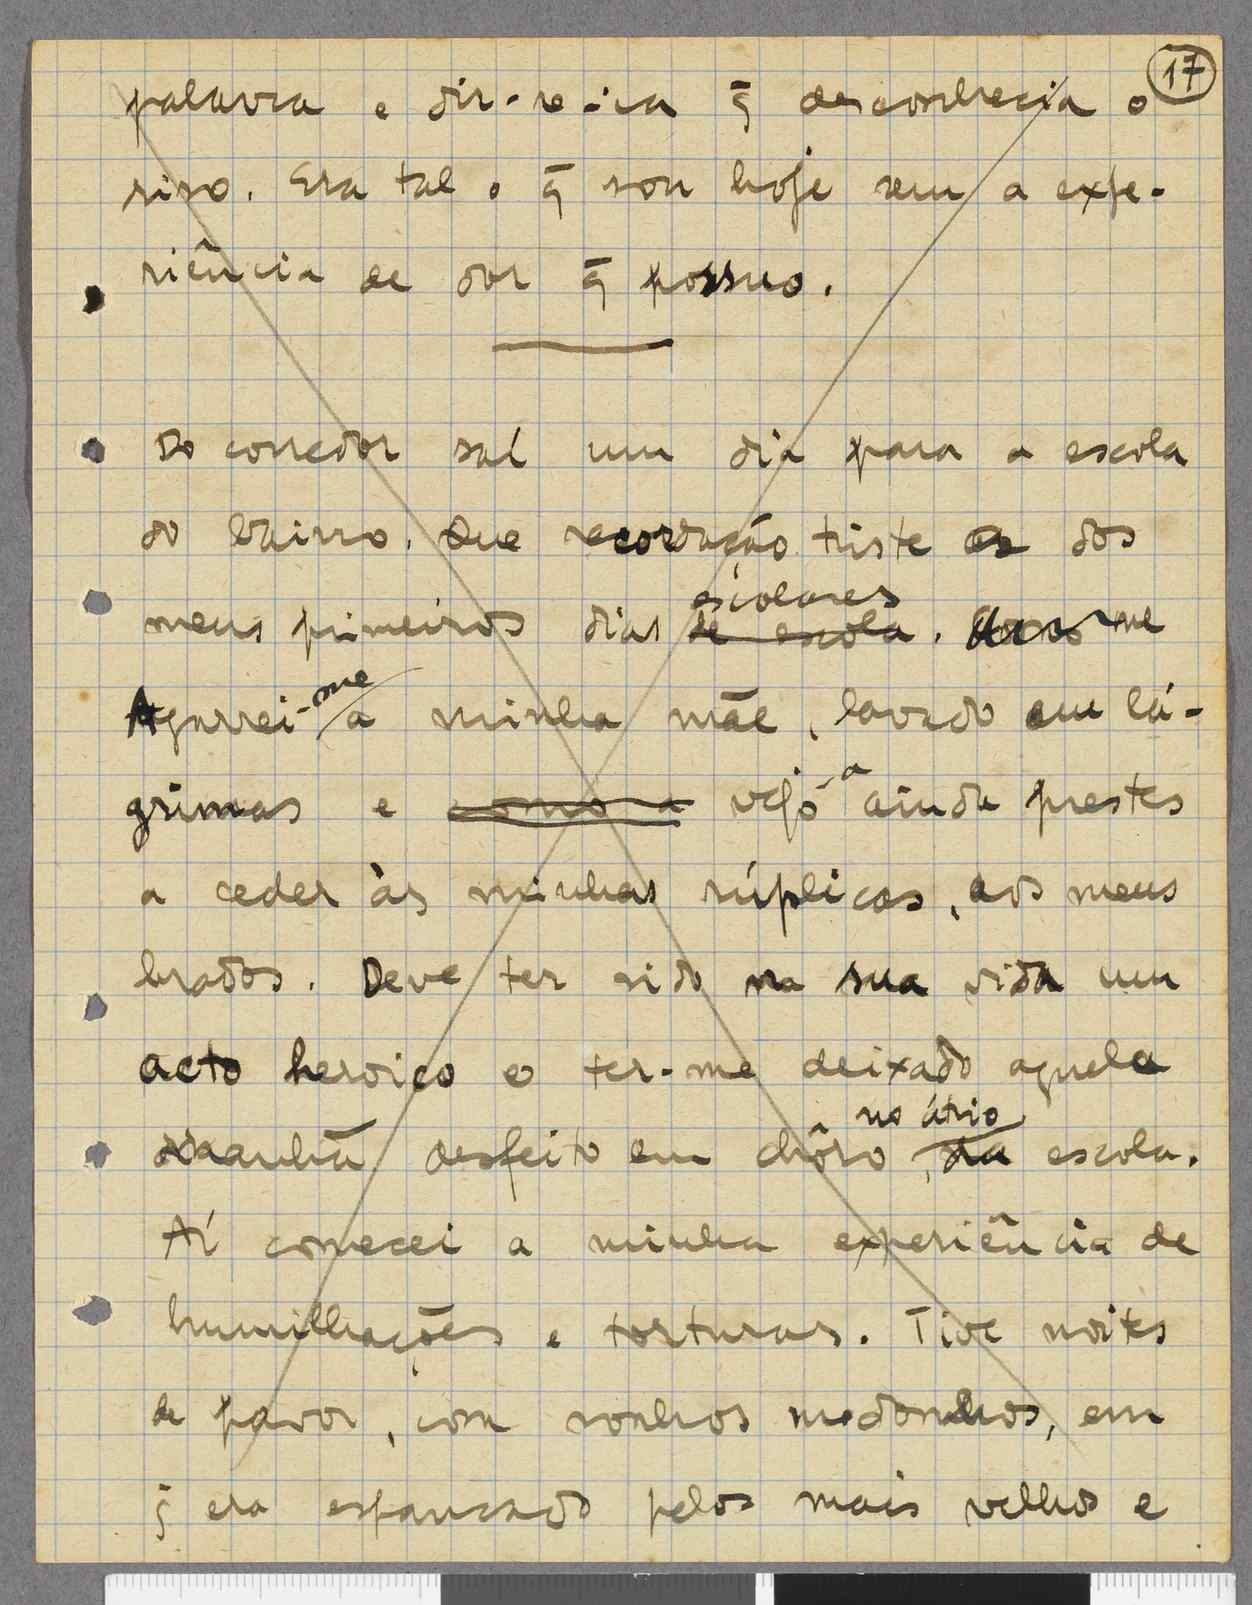 17
palavra e dir-se-ia q̄ desconhecia o
riso. Era tal o q̄ sou hoje sem a expe-
riência de dor q̄ possuo.
Do corredor saí um dia para a escola
do bairro. Que recordação triste a dos
escolares
meus primeiros dias de escola. me
Agarrei-me a minha mãe, lavado em lá-
grimas e como a vejo-a ainda prestes
a ceder às minhas súplicas, aos meus
brados. Deve ter sido na sua vida um
acto heroico o ter-me deixado aquela
no átrio
manhã desfeito em chôro, da escola.
Aí comecei a minha experiência de
humilhações e torturas. Tive noites
de pavor, com sonhos medonhos, em
q̄ era espancado pelos mais velhos e